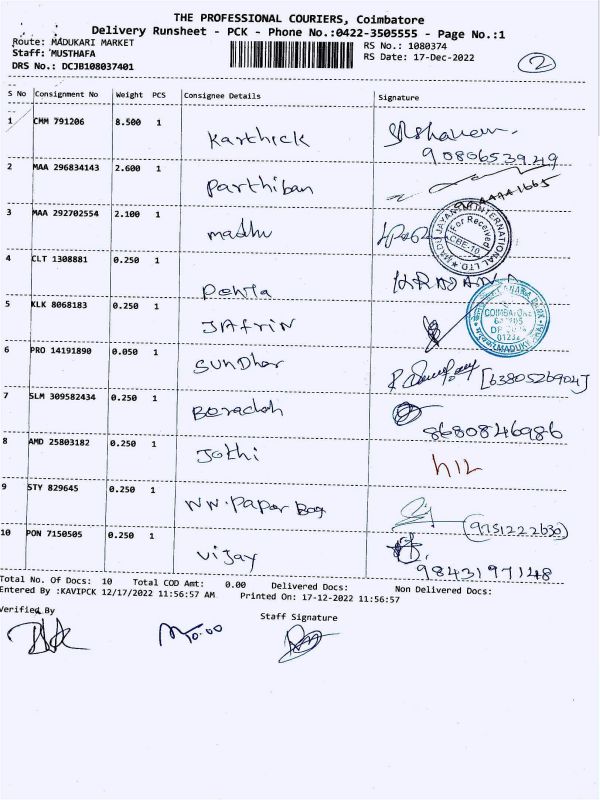 THE PROFESSIONAL COURIERS, Coimbatore
Delivery Runsheet - PCK - Phone No.:0422-3505555 - Page No.:1
Route: MADUKARI MARKET
RS No.: 1080374
Staff: MUSTHAFA
RS Date: 17-Dec-2022
DRS No.: DCJB108037401
2
S No Consignment No Weight PCS Consignee Details Signature
1 CMM 791206 8.500 1 Karthick
9080653949
2 MAA 296834143 2.600 1 Parthiban
3 MAA 292702554 2.100 1 madhu
For Received
CBE-10
4 CLT 1308881 0.250 1
5 KLK 8068183 0.250 1 JAfrin
COIMBATORE
6 PRO 14191890 0.050 1 SUNDhar
[6380526904]
7 SLM 309582434 0.250 1
8680846986
8 AMD 25803182 0.250 1 Jothi
9 STY 829645 0.250 1 NW. Paper Bag
(9751222630)
10 PON 7150505 0.250 1 Vijay
9843197148
Total No. Of Docs: 10 Total COD Amt: 0.00 Delivered Docs: Non Delivered Docs:
Entered By :KAVIPCK 12/17/2022 11:56:57 AM Printed On: 17-12-2022 11:56:57
Verified By Staff Signature